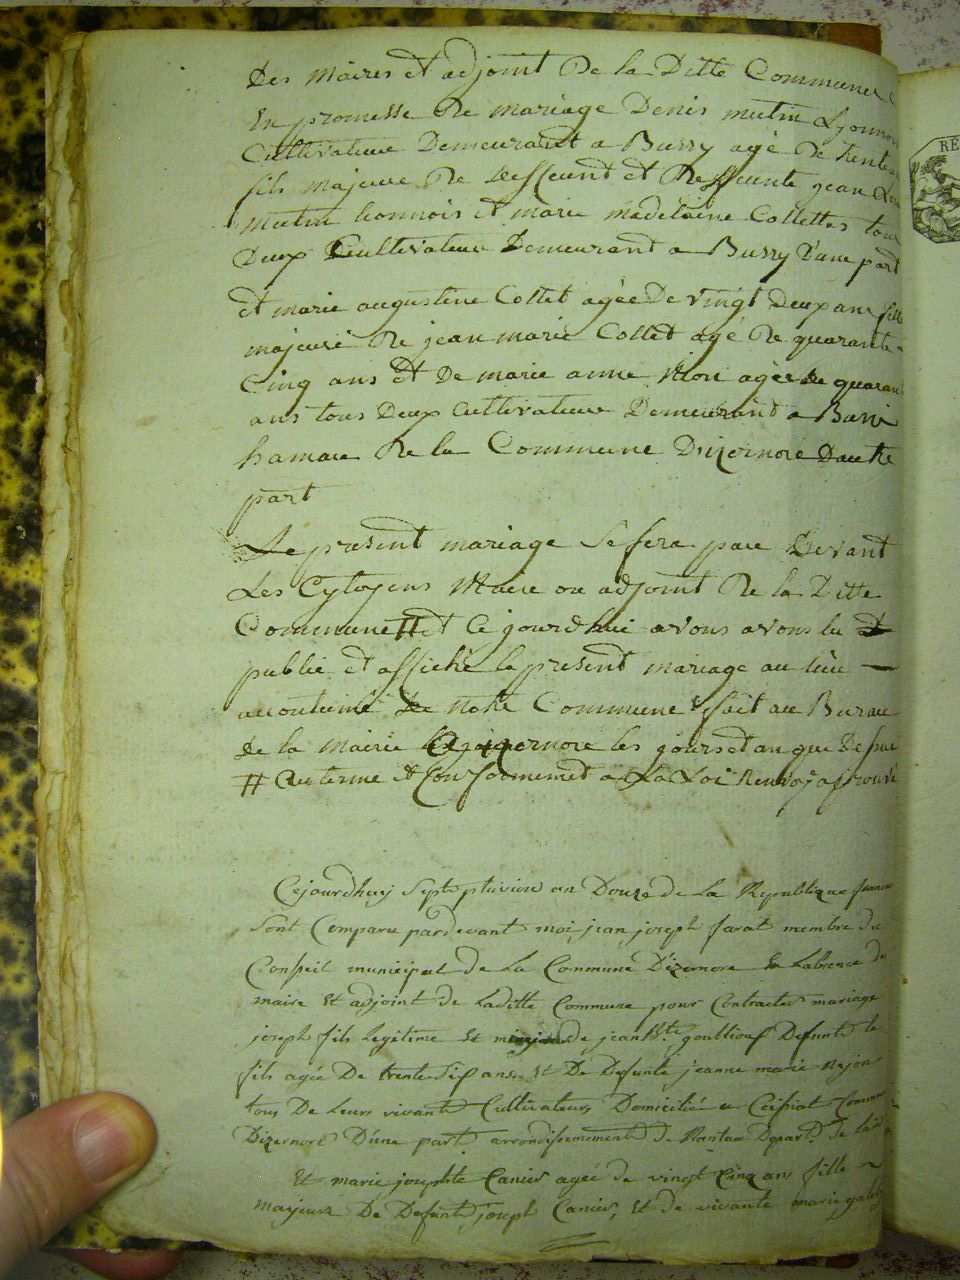 Des maires et adjoint De la Ditte Commune
En promesse De mariage Denis mutin Lyonnois
Cultivateur Demeurant a Bussy agé De trente
fils majeure De Deffeunt et De Deffeunte jean
mutin lionnois et marie madelaine Collettas tous
Deux Cultivateur Demeurant a Bussy D'une part
et marie augustine Collet agée De vingt Deux ans fille
majeure De jean marie Collet agé De quarante
Cinq ans et De marie anne agée de quarante
ans tous Deux Cultivateur Demeurant a
hamau De la Commune Dizernore Dautre
part
Le present mariage Se fera par Devant
Les Cytoyens Maire ou adjoint De la Ditte
Commune # et Ce jourdhui avons avons lu et
publie et affiché le present mariage au lieu
acoutumé De notre Commune fait au Bureau
de la mairie Dizernore les jours et an que Dessus
# au terme et Conformement a La Loi Renvoj aprouvé
Cejourdhuy Sept pluviose an Douze de La Republique francaise
Sont Comparu pardevant moi jean joseph farat membre du
Conseil municipal de La Commune Dizernore En Labsence du
maire et adjoint de Laditte Commune pour Contracter mariage
joseph fils Legitime et de jean Bte. goultiouf Defunt le
fils agée De trente Six ans et De Defunte jeanne marie
tous De Leurs vivants Cultivateurs Domicilié a Ceissiat Commune
Dizernore D'une part arrondissemement de Nantua Depart. de la
Et marie josephte Canier agée de vingt Cinq ans fille
majeure De Defunt joseph Canier, et de vivante marie
RE